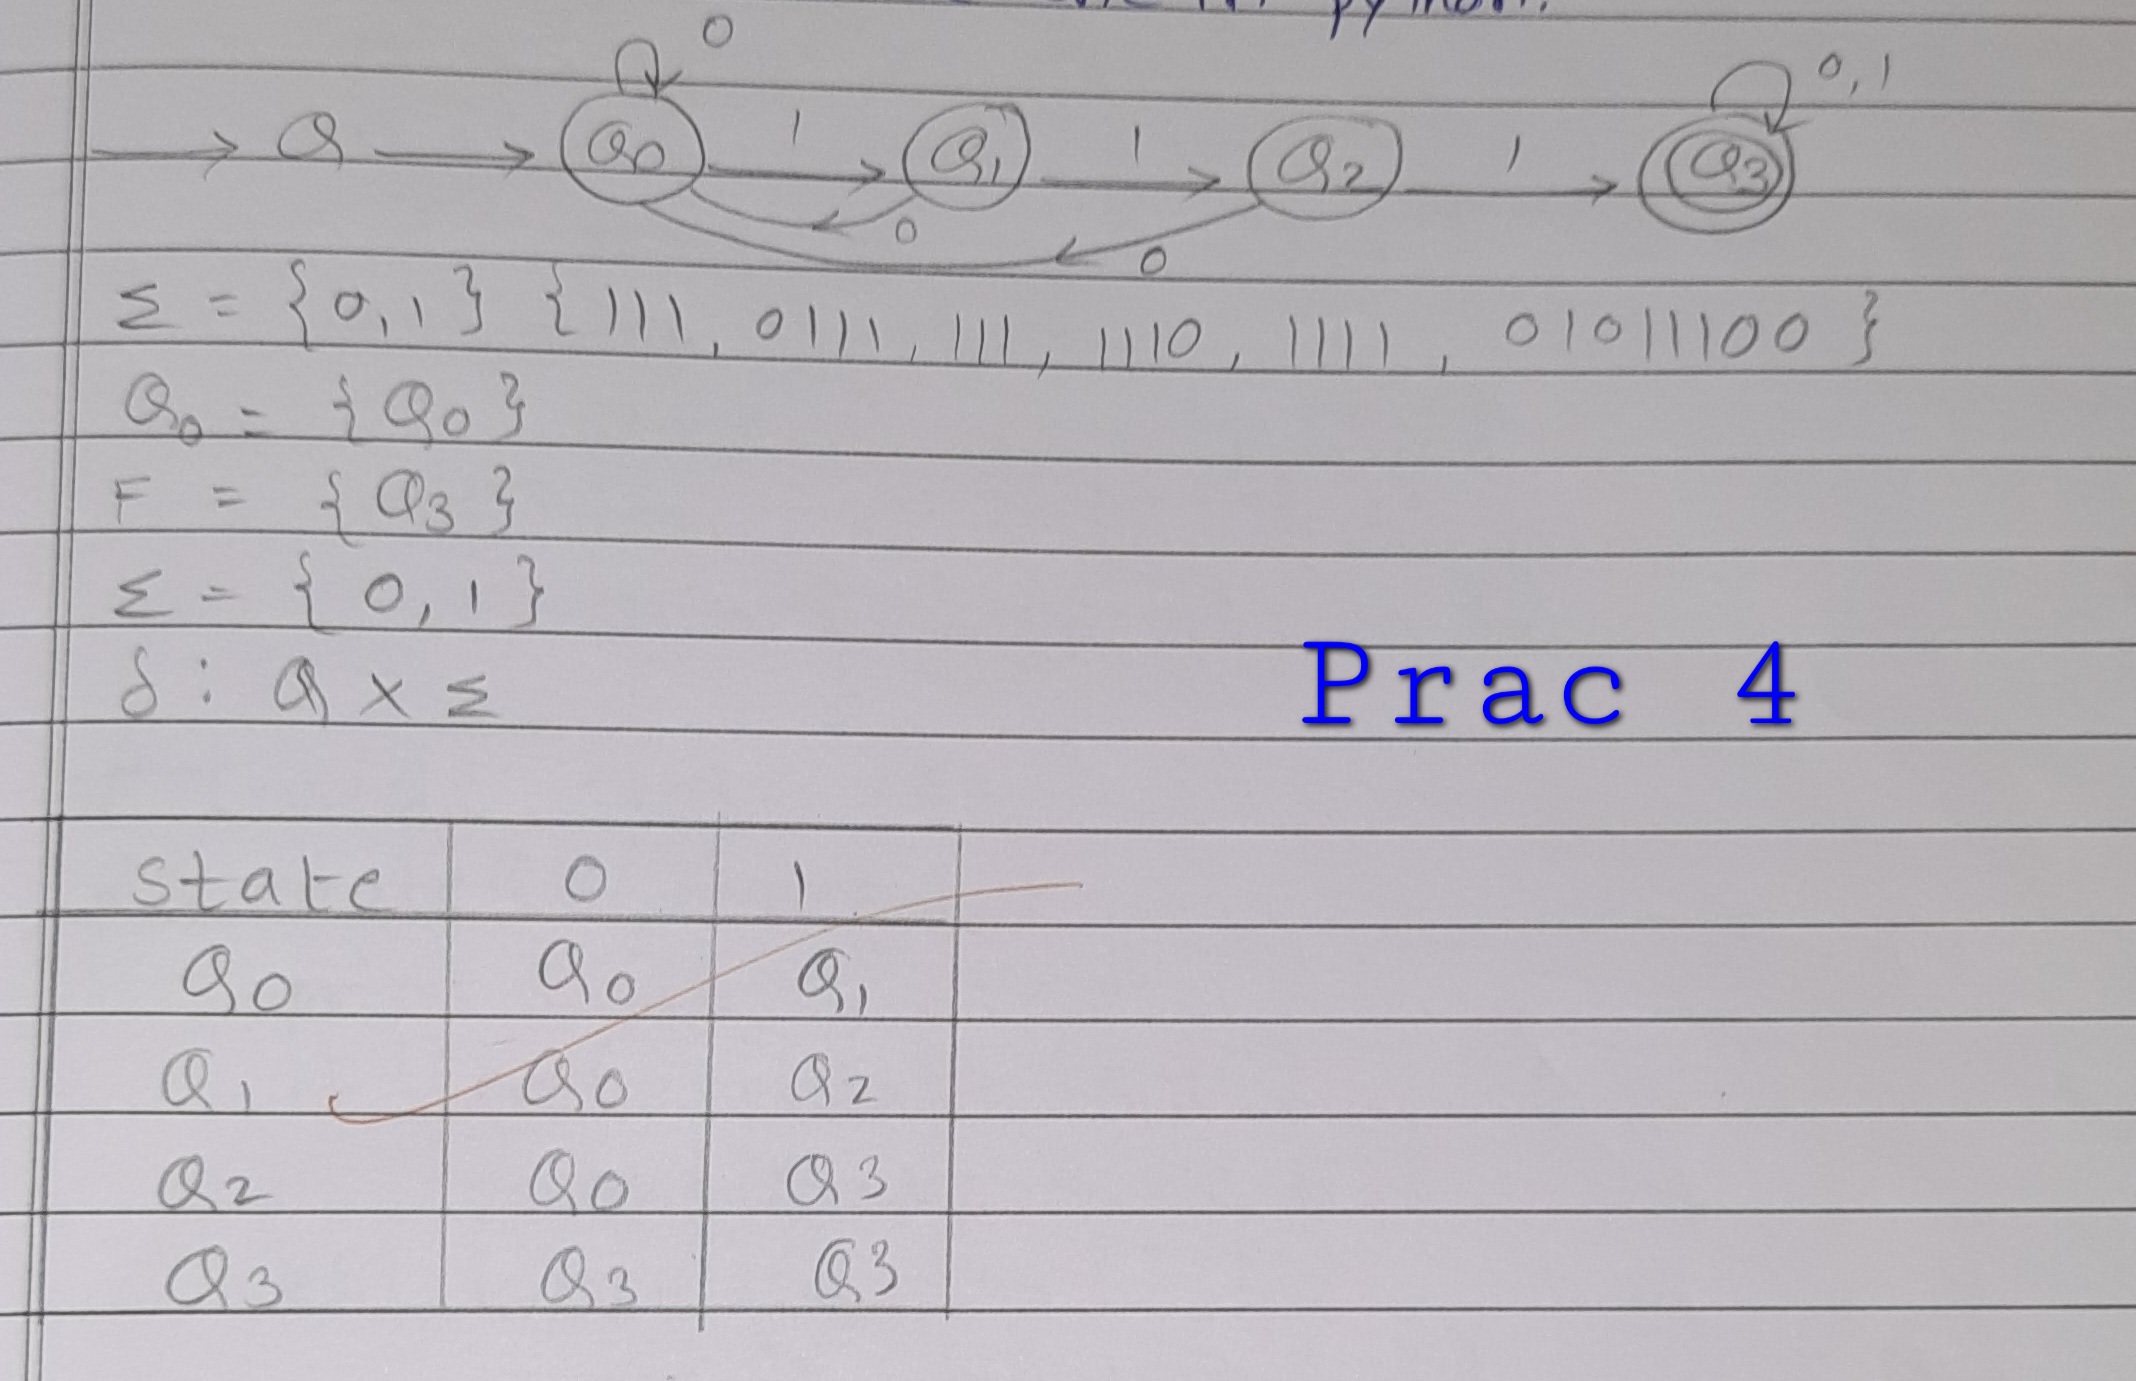 python.
0 0,1
→ Q → Q0 1 → Q1 1 → Q2 1 → Q3
0
0
Σ = {0,1} {111, 0111, 111, 1110, 1111, 01011100}
Q0 = {Q0}
F = {Q3}
Σ = {0,1}
δ : Q × Σ
Prac 4
state 0 1
Q0 Q0 Q1
Q1 Q0 Q2
Q2 Q0 Q3
Q3 Q3 Q3